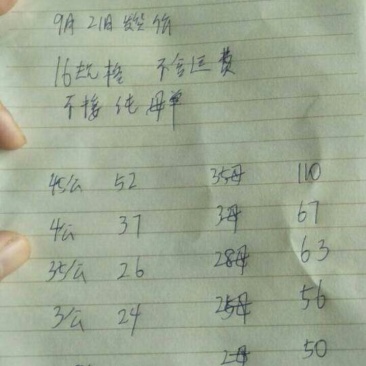 9月21日
16起档 不含运费
不接纯母单
45公 52 35母 110
4公 37 3母 67
35公 26 28母 63
3公 24 25母 56
2母 50